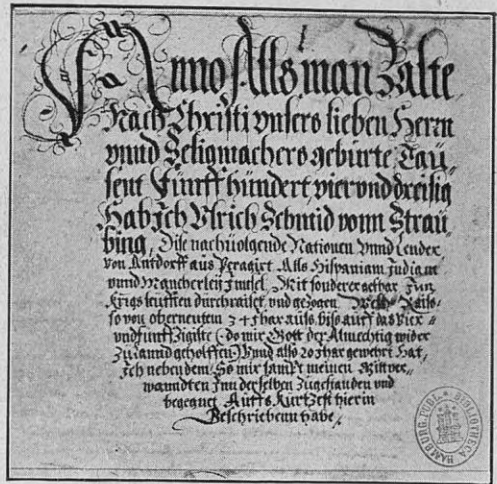 Anno Alls man Zalte
Nach Christi vnsers lieben Herrn
vnnd Seligmachers geburte Tau⸗
sent Fünff hundert vier vnd dreisig
Hab Ich Vlrich Schmid vonn Strau⸗
bing, Dise nachuolgende Nationen Vnnd Lender
von Antdorff aus Peragirt Alls Hispaniam Indiam
vnnd Mancherleÿ Innsel, Mit sonderer gefhar Inn
Kriegs leufften durchraiset, vnd gezogen Welche Raiss
so von obernentem 34 Jhar auss, biss auff das Vier⸗
vndfunffzigiste (do mir Gott der Almechtig wider
Zu Lannd geholffen) Vnnd also 20 Jhar gewehrt Hat,
Ich neben dem, So mir sampt meinen Mittver⸗
wanndten Inn derselben Zugestanden vnd
begegnet, Auffs Kurtzest hierin
Beschriebenn habe,
HAMBURG. PUBL. BIBLIOTHECA